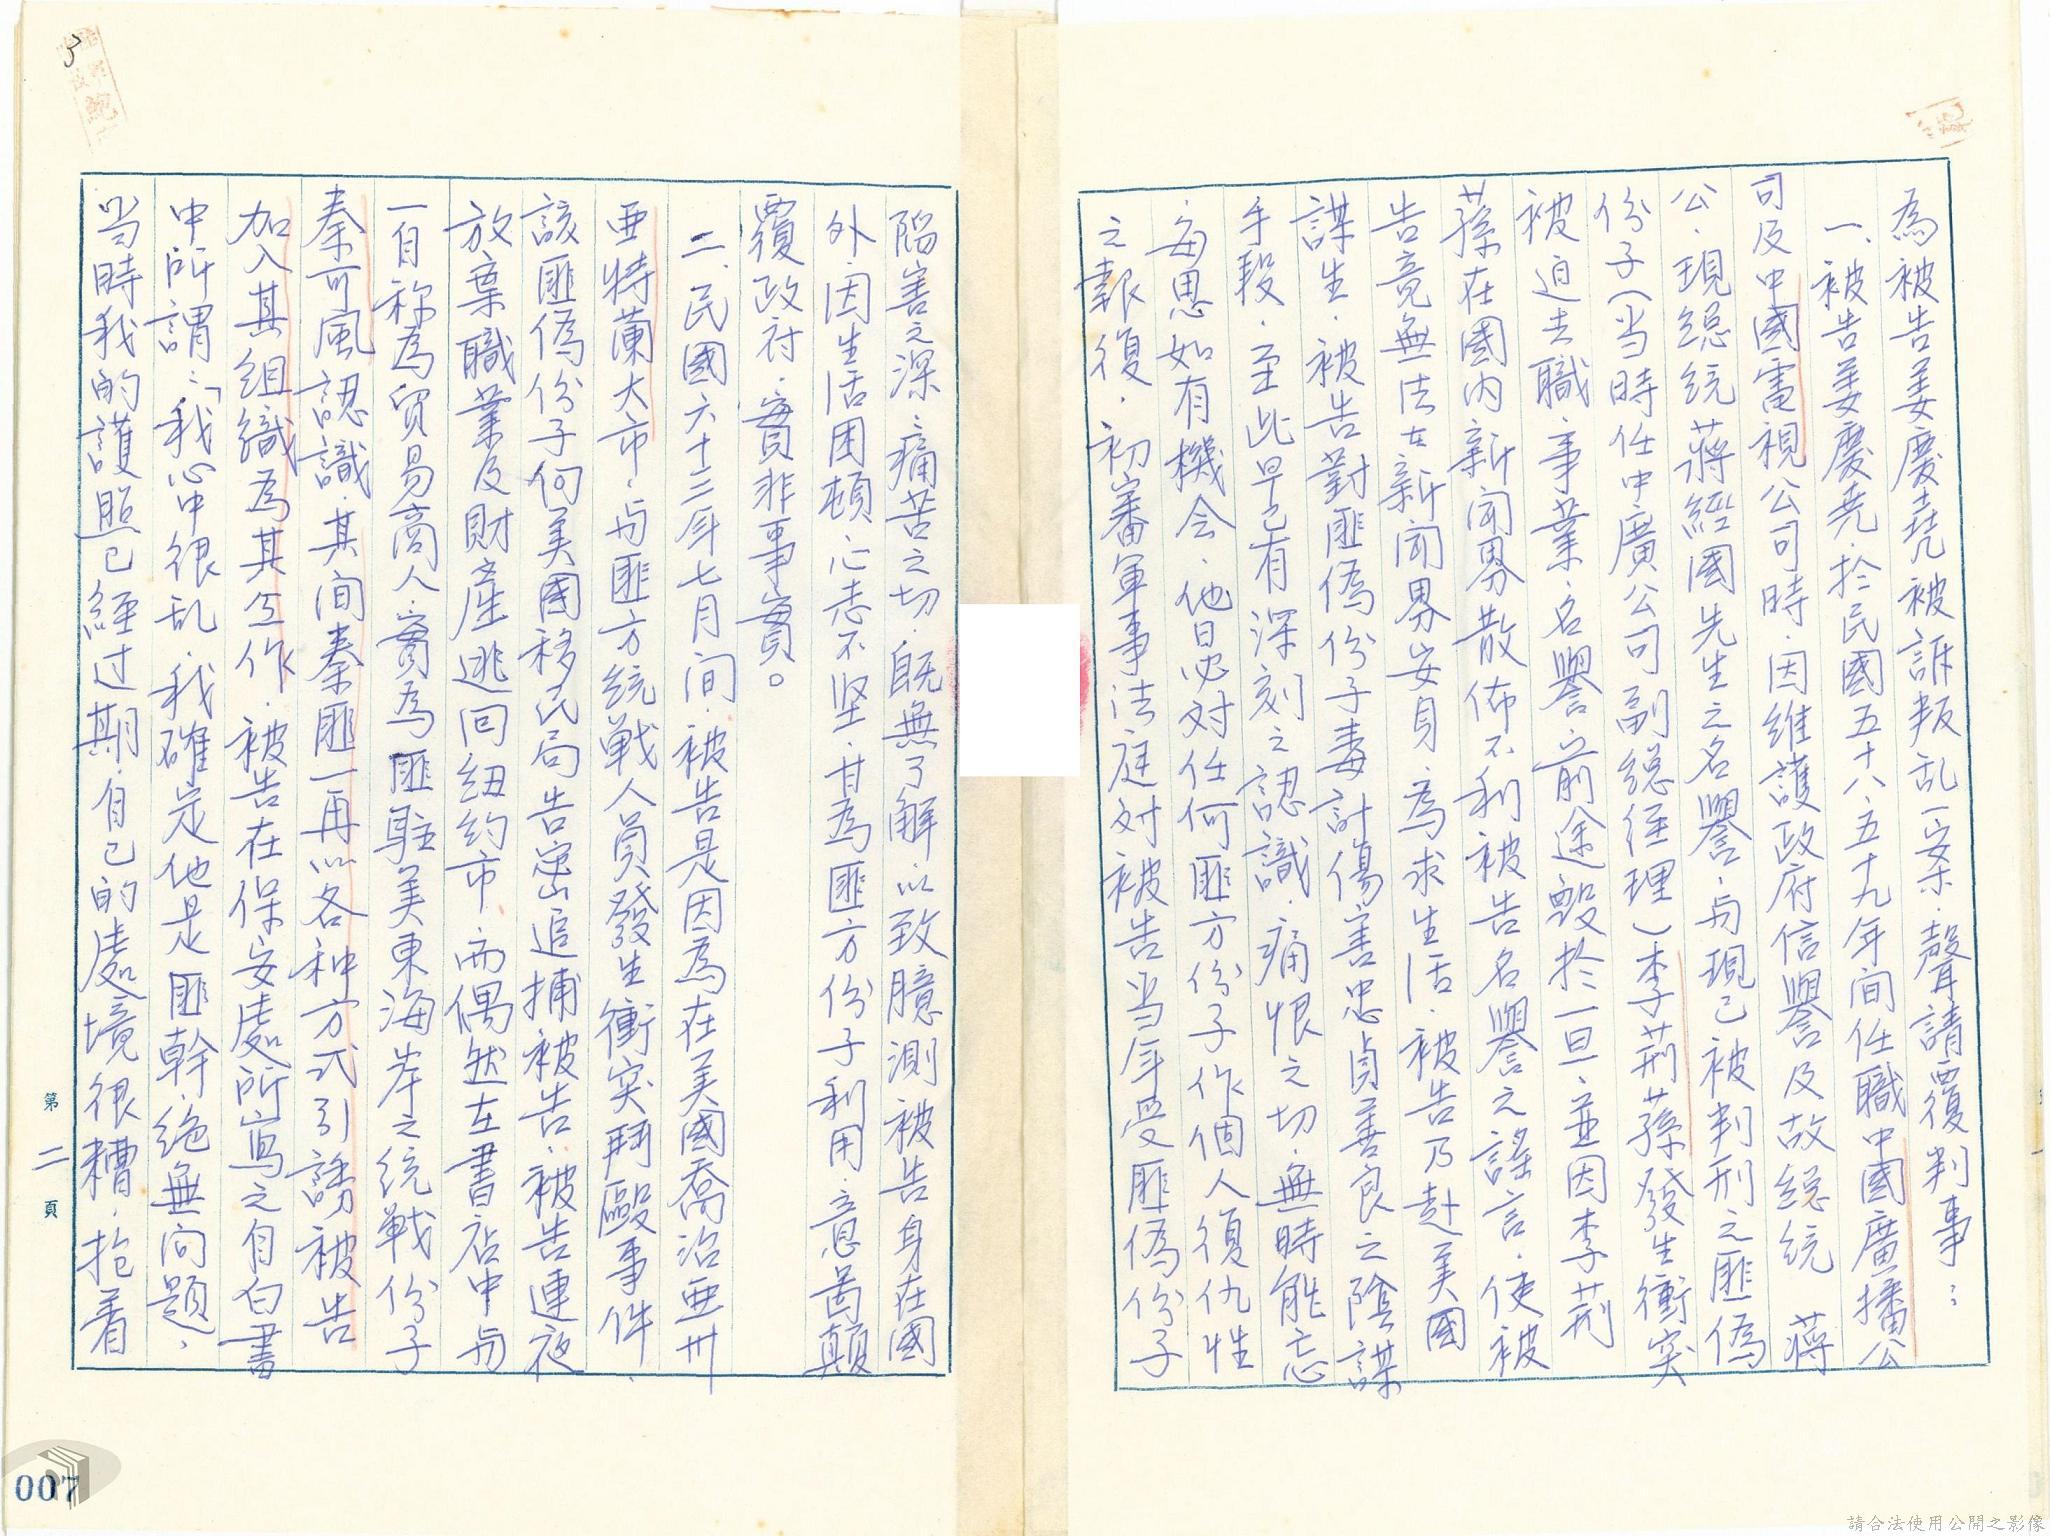 為被告姜慶堯被訴叛乱一案、聲請覆判事：
一、被告姜慶堯、於民國五十八、五十九年间任職中國廣播公
司及中國電視公司時、因維護政府信譽及故総统　蔣
公、現総统蔣經國先生之名譽、与現已被判刑之匪偽
份子(当時任中廣公司副総经理)李荊蓀發生衝突
被迫去職、事業、名譽、前途毀於一旦、並因李荊
蓀在國内新闻界散佈不利被告名譽之謠言、使被
告竟無法在新闻界安身、為求生活、被告乃赴美國
謀生、被告對匪偽份子毒計傷害忠貞善良之陰謀
手段、至此早已有深刻之認識、痛恨之切、無時能忘
每思如有機会、他日必对任何匪方份子作個人復仇性
之報復、初審軍事法庭对被告当年受匪偽份子
陷害之深、痛苦之切、既無了解、以致臆測被告身在國
外、因生活困頓、心志不坚、甘為匪方份子利用、意啚顛
覆政府、實非事實。
二、民國六十三年七月间、被告是因為在美國喬治亜州
亜特蘭大市、与匪方统戰人員發生衝突鬥毆事件、
該匪偽份子向美國移民局告密追捕被告、被告連夜
放棄職業及財產逃回纽约市、而偶然在書店中与
一自称為貿易商人、實為匪駐美東海岸之统戰份子
秦可風認識、其间秦匪一再以各种方式引誘被告
加入其組織為其工作、被告在保安處所寫之自白書
中所謂：「我心中很乱、我確定他是匪幹、绝無问題、
当時我的護照已經过期、自己的處境很糟、抱着
第二頁
007
請合法使用公開之影像